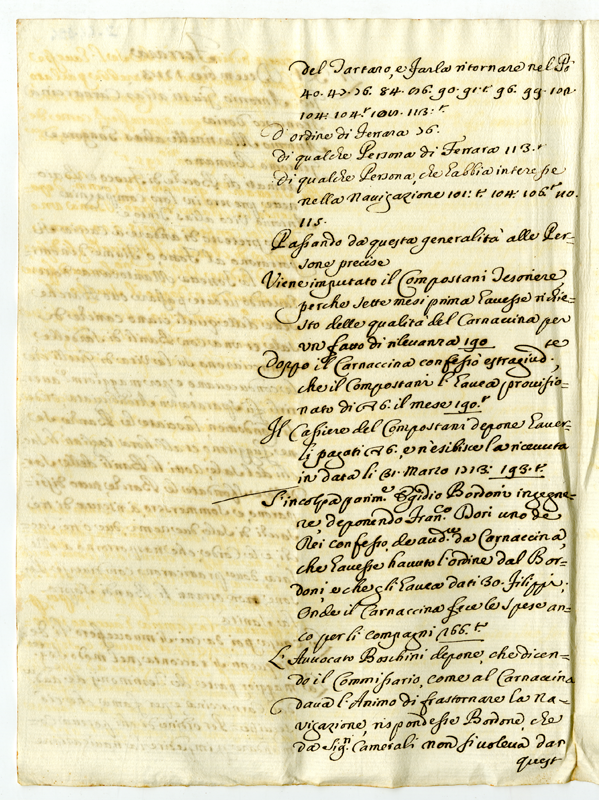 del Tartaro, e farla ritornare nel Pò
40. 42. 76. 84. 86. 90. 91.t 96. 99. 101.
104. 104.t 113.t
d'ordine di Ferara 76.
di qualche Persona di Ferrara 113.t
di qualche Persona, che habbia interesse
nella Navigazione 101.t 104. 106.t 110.
115.
Passando da questa generalità alle Per=
sone precise
Viene imputato il Compostani Tesoriere
perche sette mesi prima havesse richie=
sto delle qualità del Carnaccina per
un fatto di rilevanza 190
Doppo il Carnaccina confessò estragiud.te
che il Compostani l'havea provisio=
nato di 6. il mese 190.t
Il Cassiere del Compostani depone haver=
li pagati 6., e n'esibisce la ricevuta
in data li 31. Marzo 1713. 193.t
S'incolpa Egidio Bordoni ingegne=
re, deponendo Fran.co Dori uno de
Rei confesso, de aud.tu da Carnaccina,
che havesse havuto l'ordine dal Bor=
doni, e che gli havea dati 30. Filippi.
Onde il Carnaccina fece le spese an=
co per li compagni 166.t
L'Avvocato Boschini depone, che dicen=
do il Commissario, come al Carnaccina
dava l'Animo di frastornare la Na=
vigazione, rispondesse Bordone, che
da Sig.ri Camerali non si voleva dar
quest